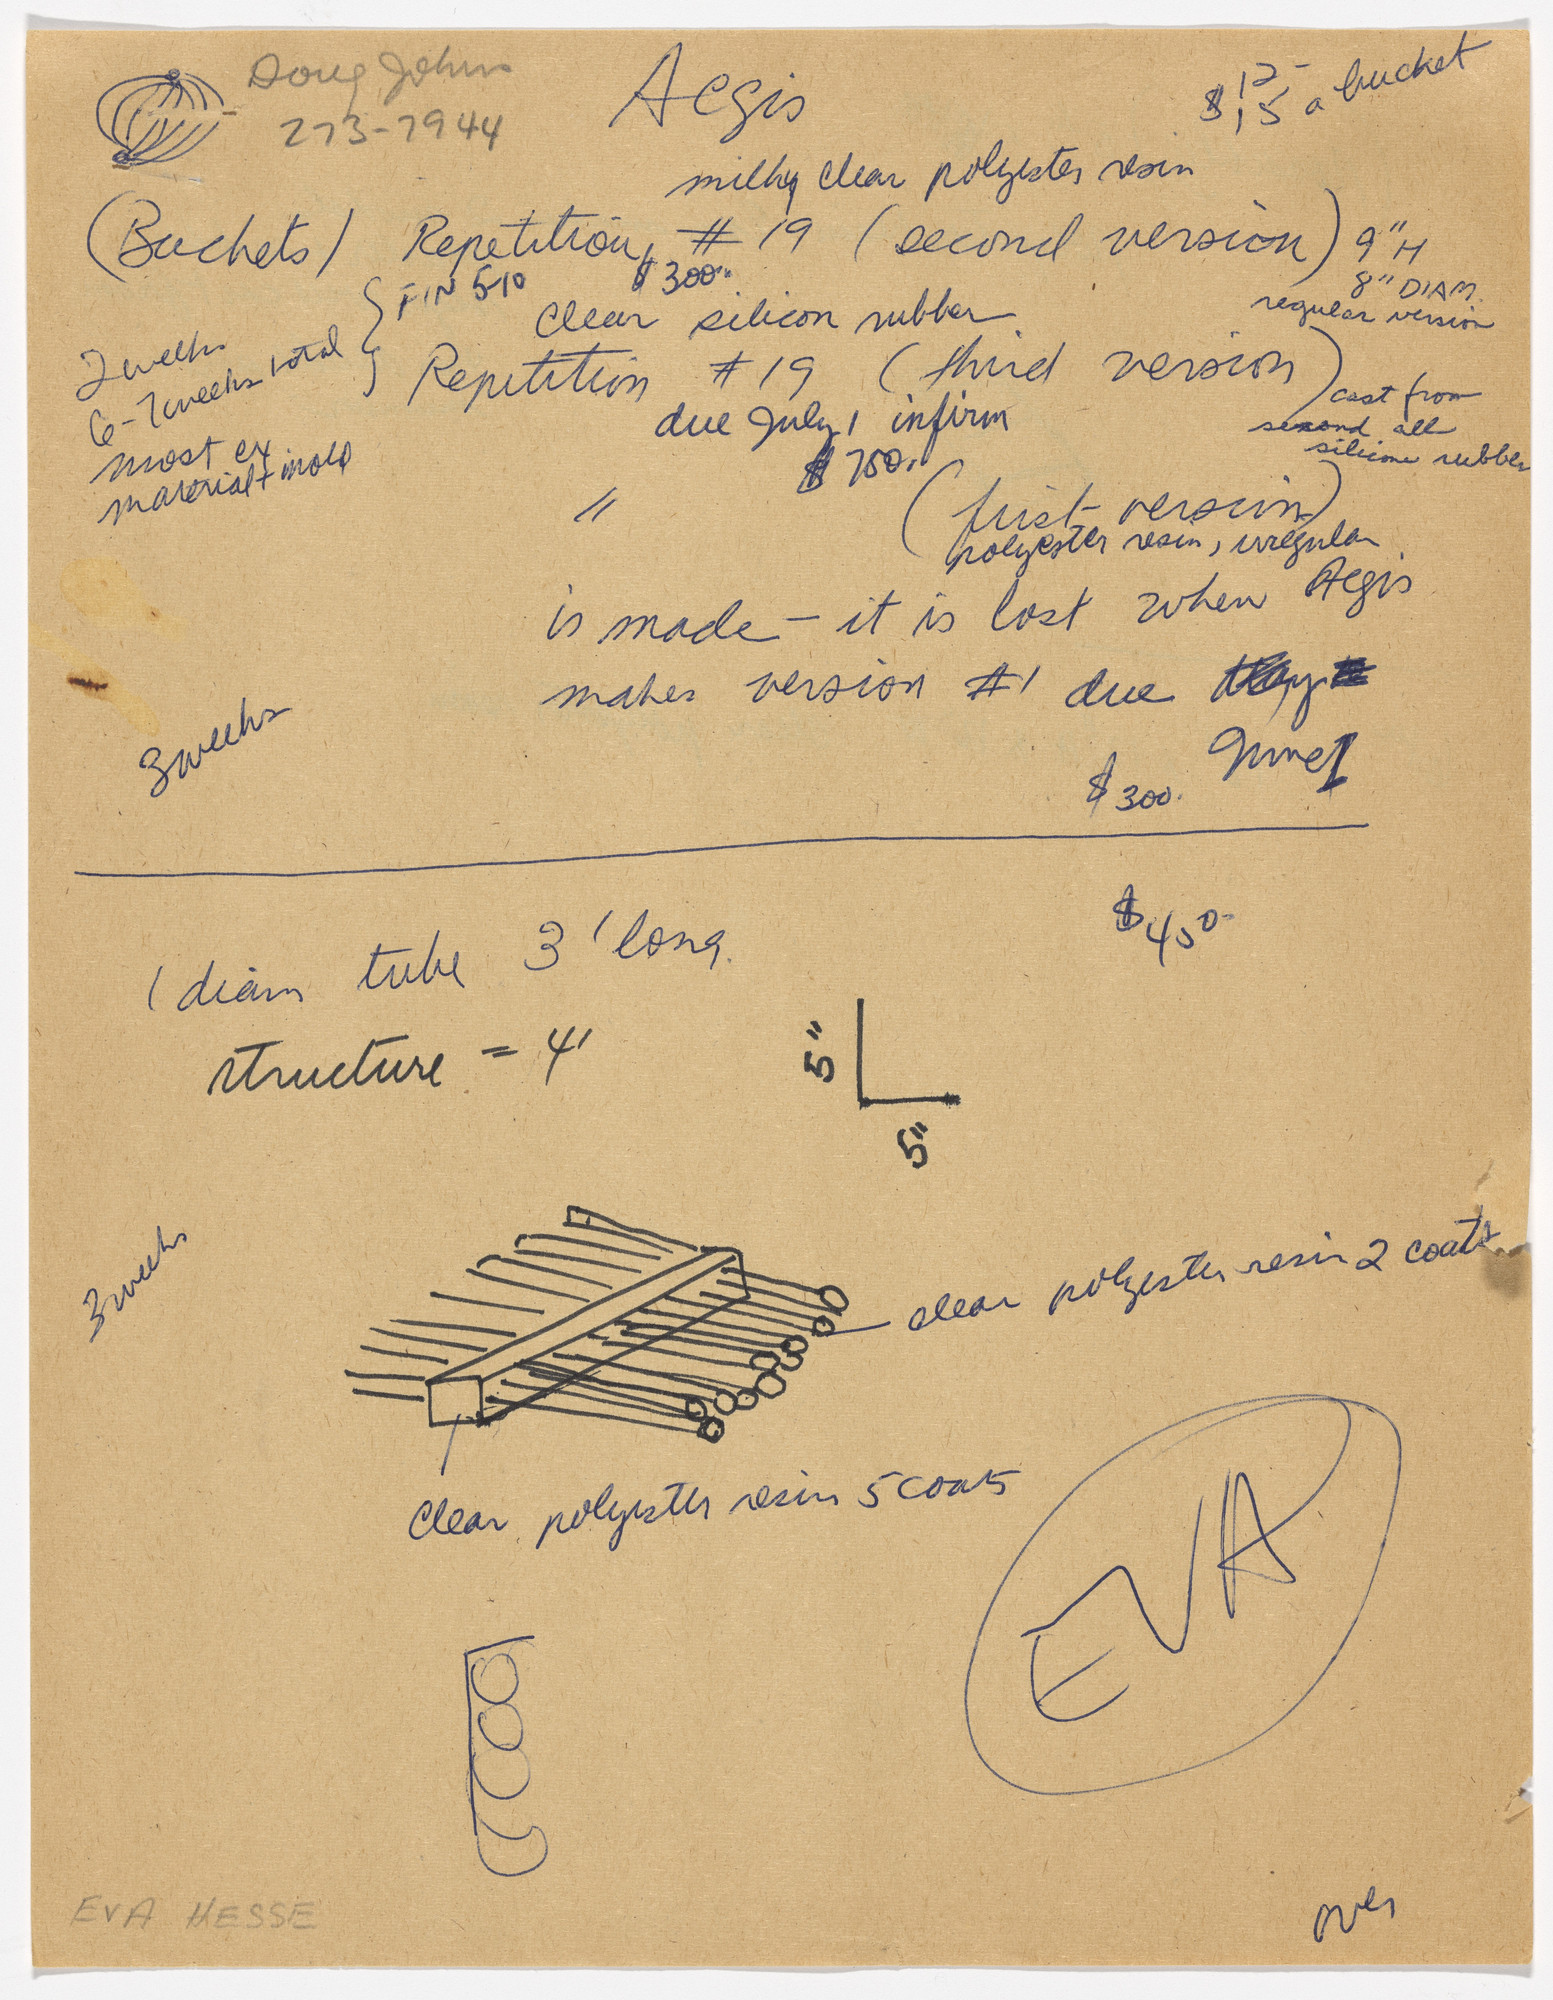 Doug Johns
273-7944
Aegis
$ 12-
15 a bucket
milky clear polyester resin
(Buckets) Repetition, # 19 (second version) 9" H
8" DIAM.
regular version
FIN 5-10 $ 300.
clear silicon rubber
2 weeks
6-7 weeks total
most ex
material + mold
Repetition # 19 (third version)
cast from
second all
silicone rubber
due July 1 infirm
$ 750.
" (first version)
polyester resin, irregular
is made - it is lost when Aegis
makes version #1 due
June 1
$ 300.
3 weeks
$ 450-
1 diam tube 3' long.
structure = 4'
5"
5"
3 weeks
clear polyester resin 2 coats
clear polyester resin 5 coats
EVA
EVA HESSE
over